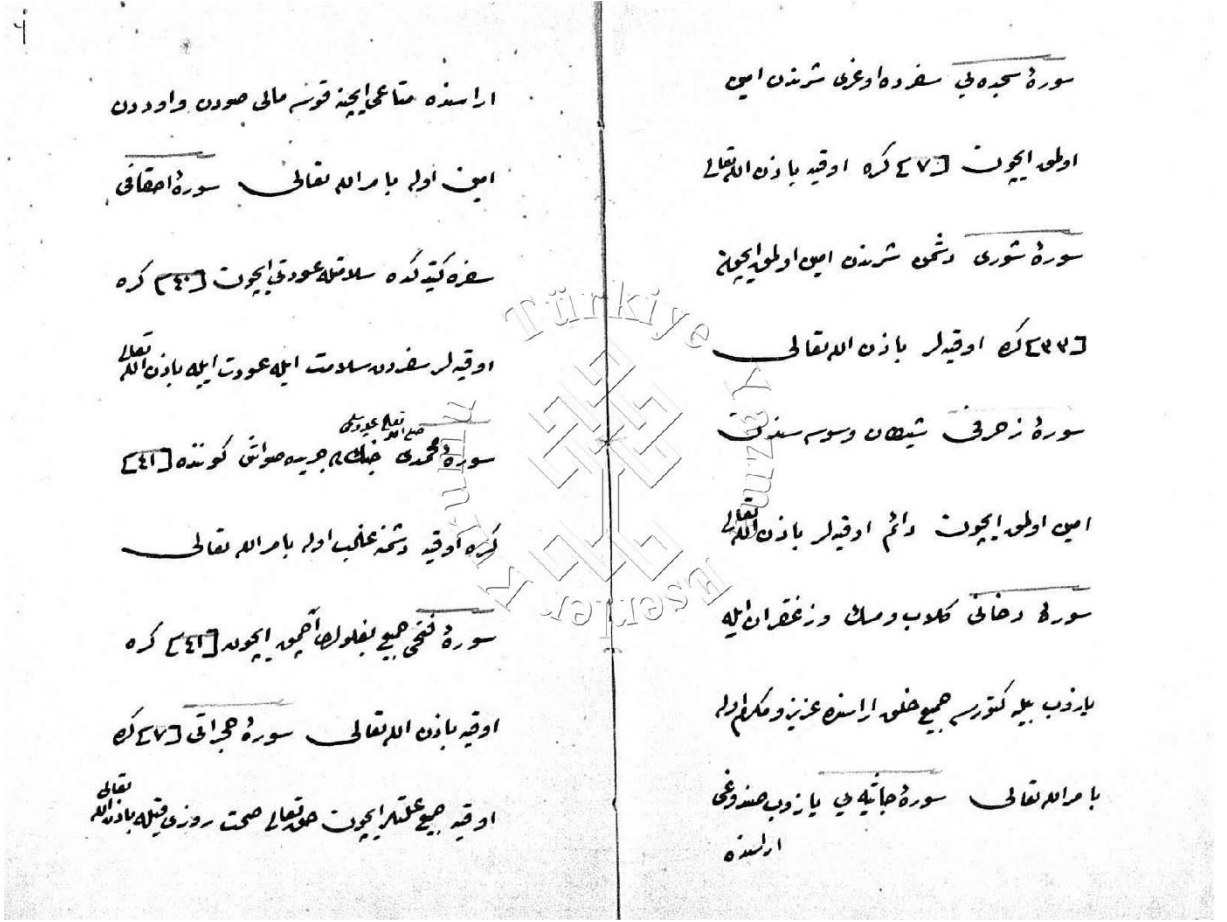 سورۀ سجده‌يی سفرده اوغری شرندن امین
اولمق ایچون [٧] کره اوقیه باذن الله تعالی
سورۀ شوری دشمن شرندن امین اولمق ایچون
[٣٣] کره اوقیه‌لر باذن الله تعالی
سورۀ زخرفی شیطان وسوسه سندن
امین اولمق ایچون دائم اوقیه‌لر باذن الله تعالی
سورۀ دخانی کلاب ومسك وزعفران ایله
یازوب بیله کتورسه جمیع خلق اراسنده عزیز ومکرم اوله
بامر الله تعالی سورۀ جاثیه‌يی یازوب صندوغی
اراسنده
٦
اراسنده متاعی ایچنه قونسه مالی صودن واوددن
امین اوله بامر الله تعالی سورۀ احقافی
سفره کیتدکده سلامتله عودتی ایچون [٤٠] کره
اوقیه‌لر سفردن سلامت ایله عودت ایلیه باذن الله تعالی
سورۀ محمدی صلی الله تعالی علیه وسلم جنك وجریده صواش کوننده [٤١]
کره اوقیه دشمنه غالب اوله بامر الله تعالی
سورۀ فتحی جمیع بغلولری آچمق ایچون [٤١] کره
اوقیه باذن الله تعالی سورۀ حجراتی [٧] کره
اوقیه جمیع علتلر ایچون حق تعالی صحت روزی قیله باذن الله تعالی
Türkiye Yazma Eserler Kurumu